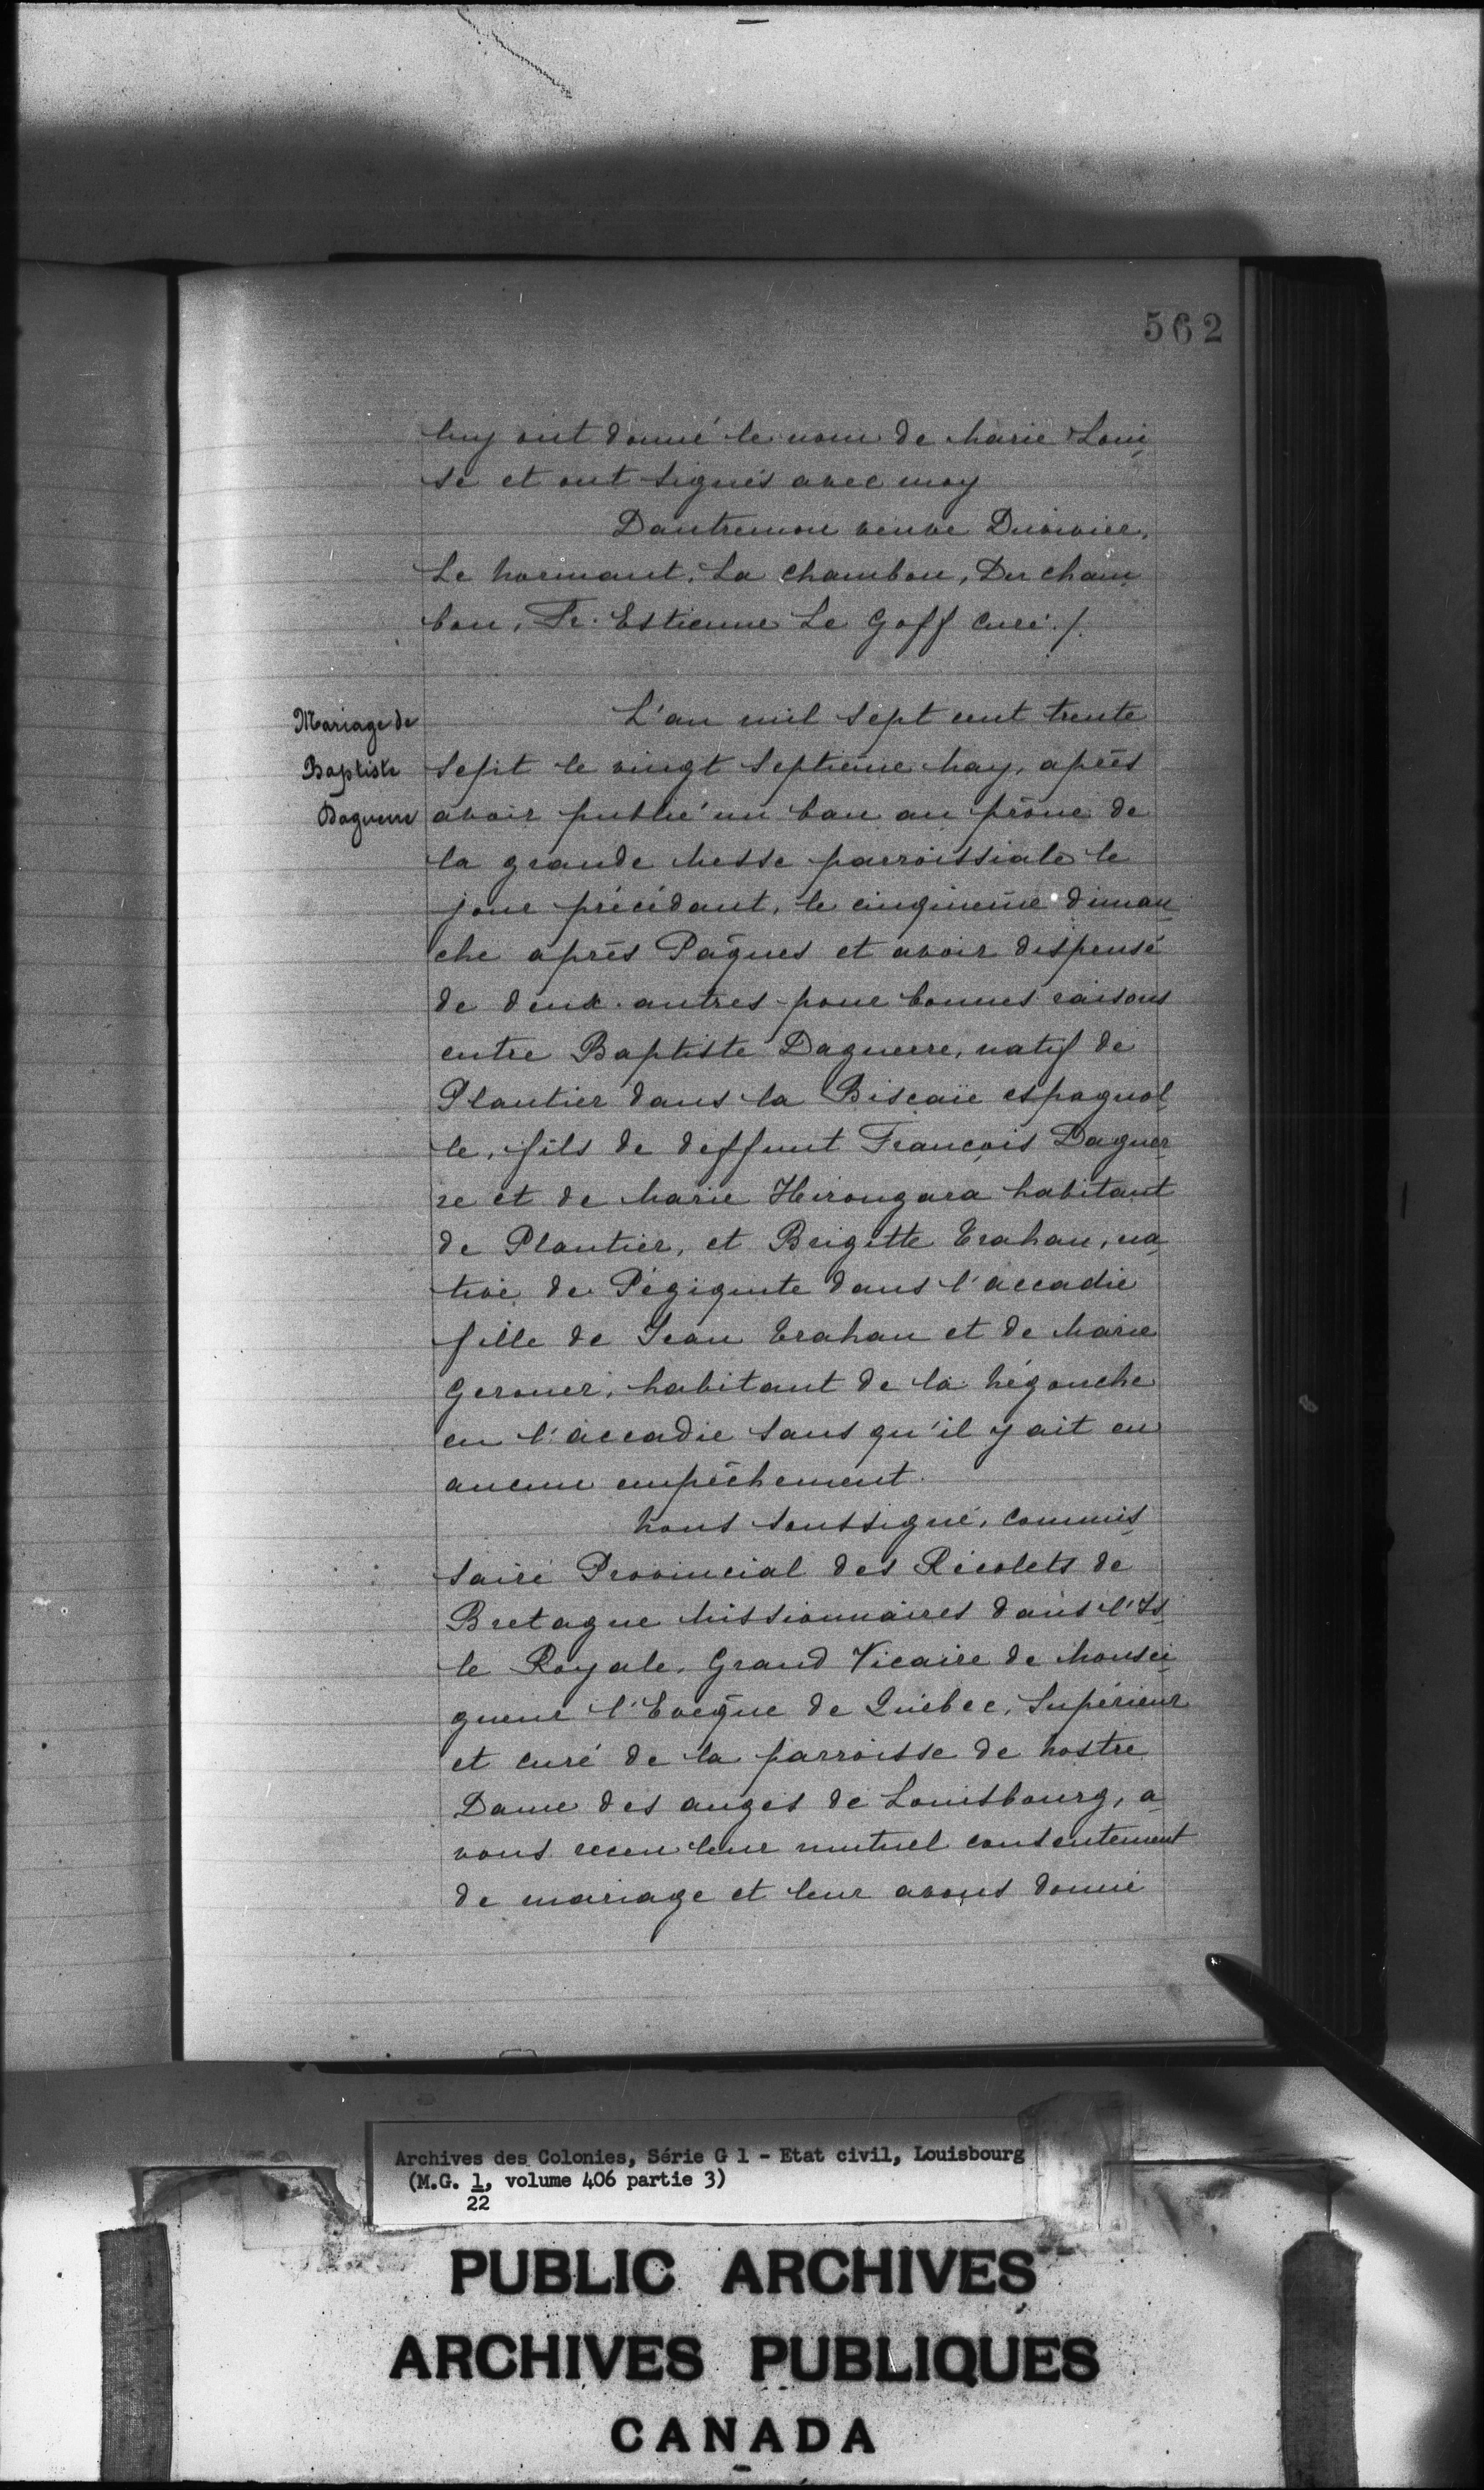 562
luy ont donné le nom de Marie Loui
se et ont signés avec moy
Dantremon veuve Duvivier,
Le Normant, La Chambon, Du cham
bon, Fr. Estienne Le Goff Curé ./.
Mariage de
Baptiste
Daguerre
L'an mil sept cent trente
sept le vingt septieme May, aprés
avoir publié un ban au prône de
la grande Messe parroissiale le
jour précédant, le cinquieme diman
che aprés Pâques et avoir dispensé
de deux autres pour bonnes raisons
entre Baptiste Daguerre, natif de
Plantier dans la Biscaïe espagnol
le, fils de deffunt François Daguer
re et de Marie Hirongara habitant
de Plantier, et Brigitte Trahan, na
tive de Pégiguite dans l'accadie
fille de Jean Trahan et de Marie
Gerouer, habitant de la Hégouche
en l'accadie sans qu'il y ait eu
aucun empêchement.
Nous soussigné, Commis
saire Provincial des Récolets de
Bretagne Missionnaires dans l'Is
le Royale, Grand Vicaire de Monsei
gneur l'Evêque de Québec, Supérieur
et curé de la parroisse de Nostre
Dame des anges de Louisbourg, a
vons receu leur mutuel consentement
de mariage et leur avons donné
Archives des Colonies, Série G 1 - Etat civil, Louisbourg
(M.G. 1, volume 406 partie 3)
22
PUBLIC ARCHIVES
ARCHIVES PUBLIQUES
CANADA